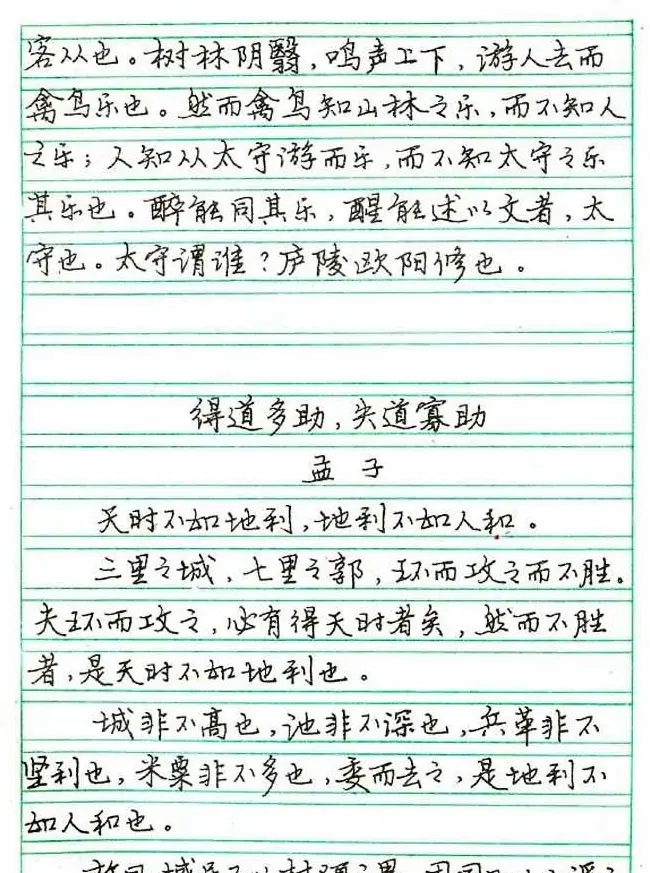 客从也。树林阴翳，鸣声上下，游人去而
禽鸟乐也。然而禽鸟知山林之乐，而不知人
之乐；人知从太守游而乐，而不知太守之乐
其乐也。醉能同其乐，醒能述以文者，太
守也。太守谓谁？庐陵欧阳修也。
得道多助，失道寡助
孟子
天时不如地利，地利不如人和。
三里之城，七里之郭，环而攻之而不胜。
夫环而攻之，必有得天时者矣，然而不胜
者，是天时不如地利也。
城非不高也，池非不深也，兵革非不
坚利也，米粟非不多也，委而去之，是地利不
如人和也。